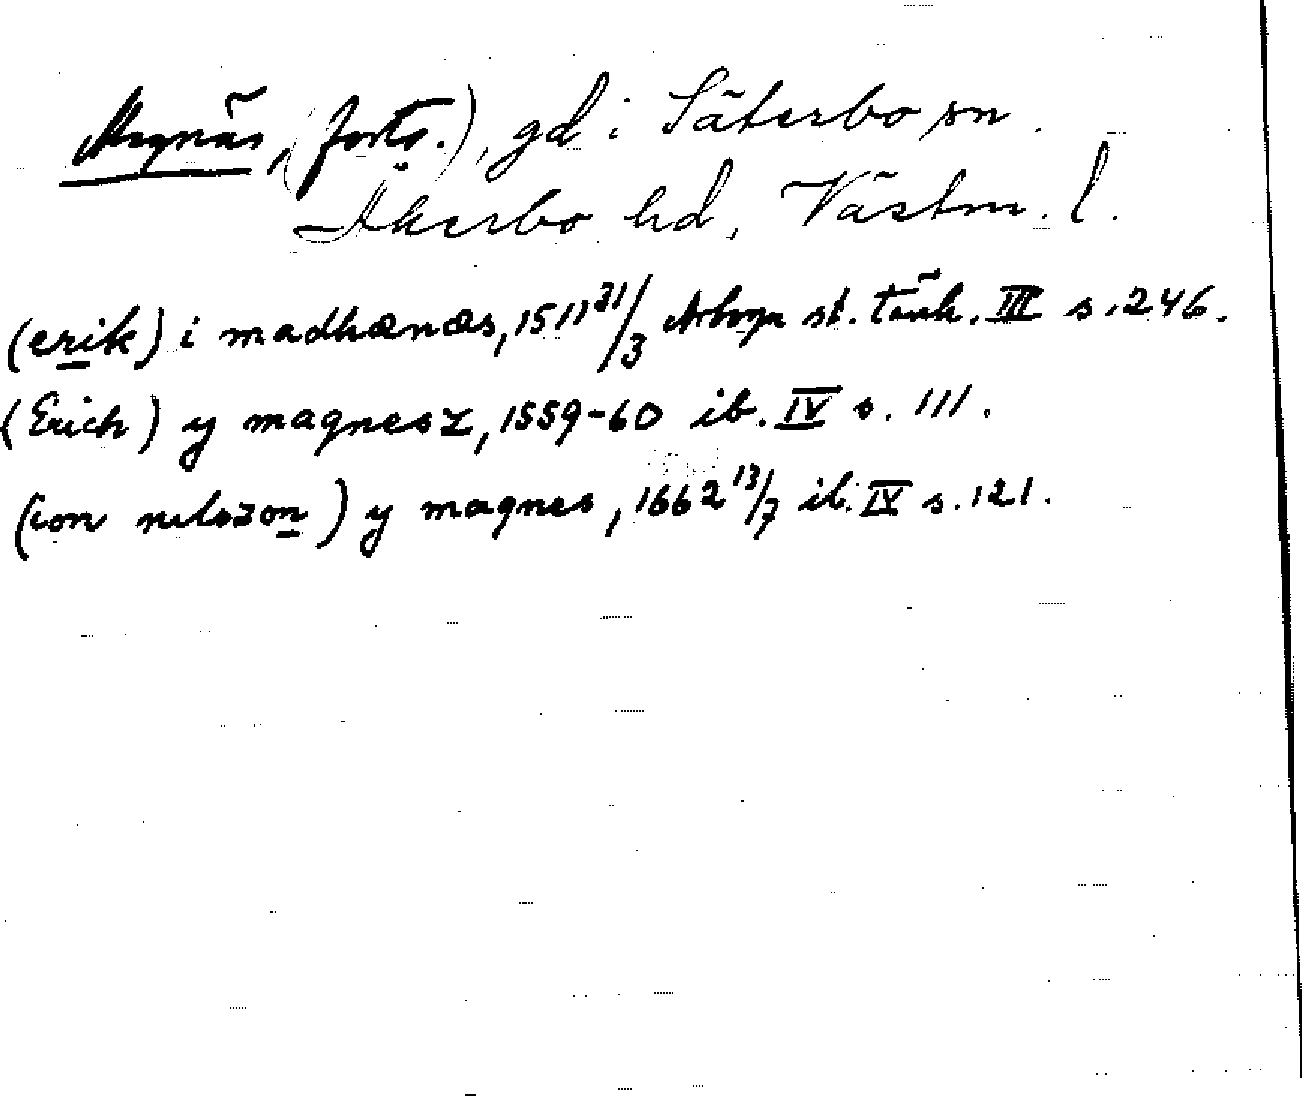 Magnäs, (forts.), gd i Säterbo sn.
Åkerbo hd, Västm. l.
(erik) i madhænæs, 1511 21/3 Arboga st. tänk. III s. 246.
(Erich) y magnesz, 1559-60 ib. IV s. 111.
(ion nilszon) y magnes, 1662 13/7 ib. IV s. 121.